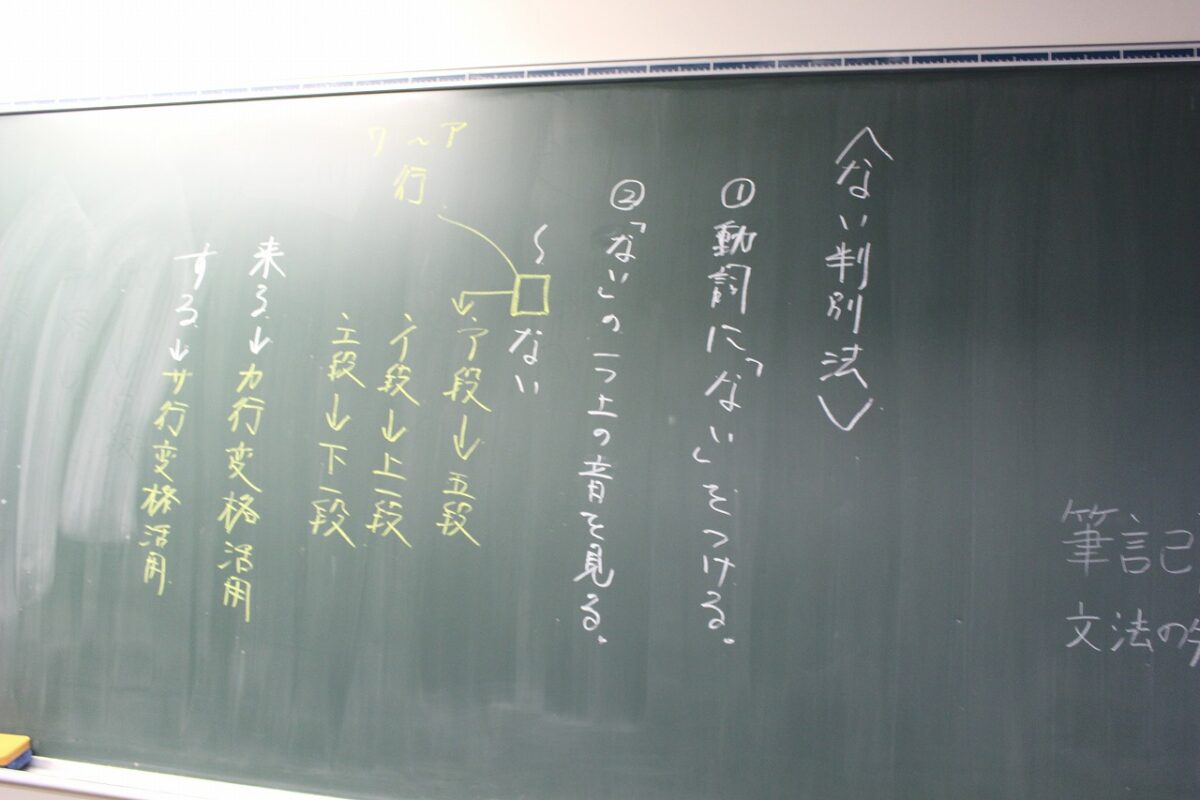 筆記
文法の
〈ない判別法〉
①動詞に「ない」をつける。
②「ない」の一つ上の音を見る。
～□ない
ア～ワ
行
ア段→五段
イ段→上一段
エ段→下一段
来る→カ行変格活用
する→サ行変格活用